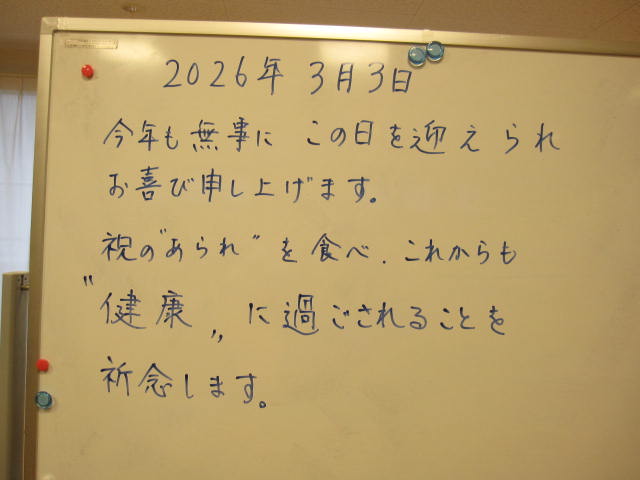 2026年 3月3日
今年も無事に この日を迎えられ
お喜び申し上げます。
祝の"あられ"を食べ、これからも
"健康„に過ごされることを
祈念します。